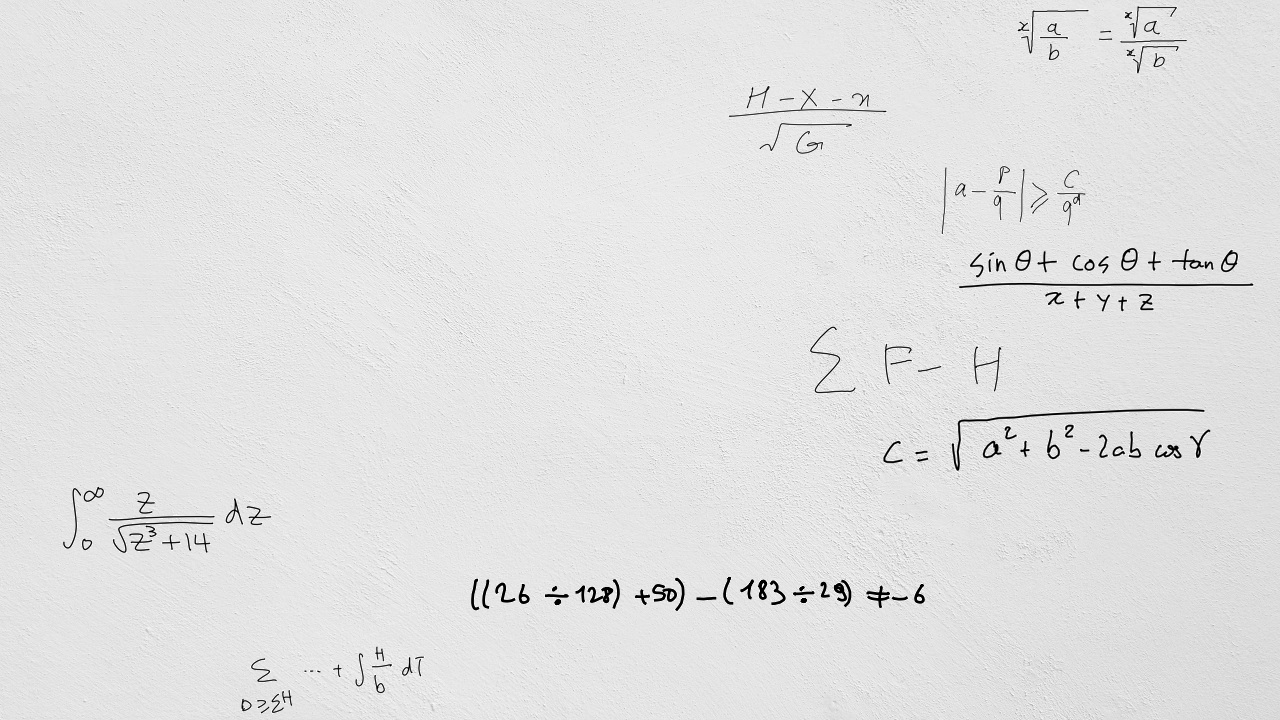 ˣ√(a/b) = ˣ√a / ˣ√b
(H - X - n) / √G
|a - p/q| ⩾ c/qᵈ
(sin θ + cos θ + tan θ) / (x + y + z)
∑ F - H
c = √(a² + b² - 2ab cos γ)
∫₀^∞ z / √(z³ + 14) dz
((26 ÷ 128) + 50) - (183 ÷ 29) ≠ - 6
∑_{0 ⩾ ∑H} ... + ∫ H/b dT